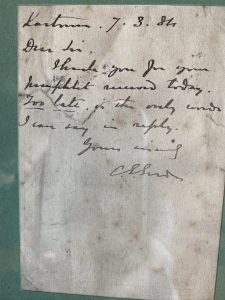 Kartoum. 7. 3. 84
Dear Sir.
Thank you for your
pamphlet received today.
Too late. is the only words
I can say in reply.
Yours sincerely